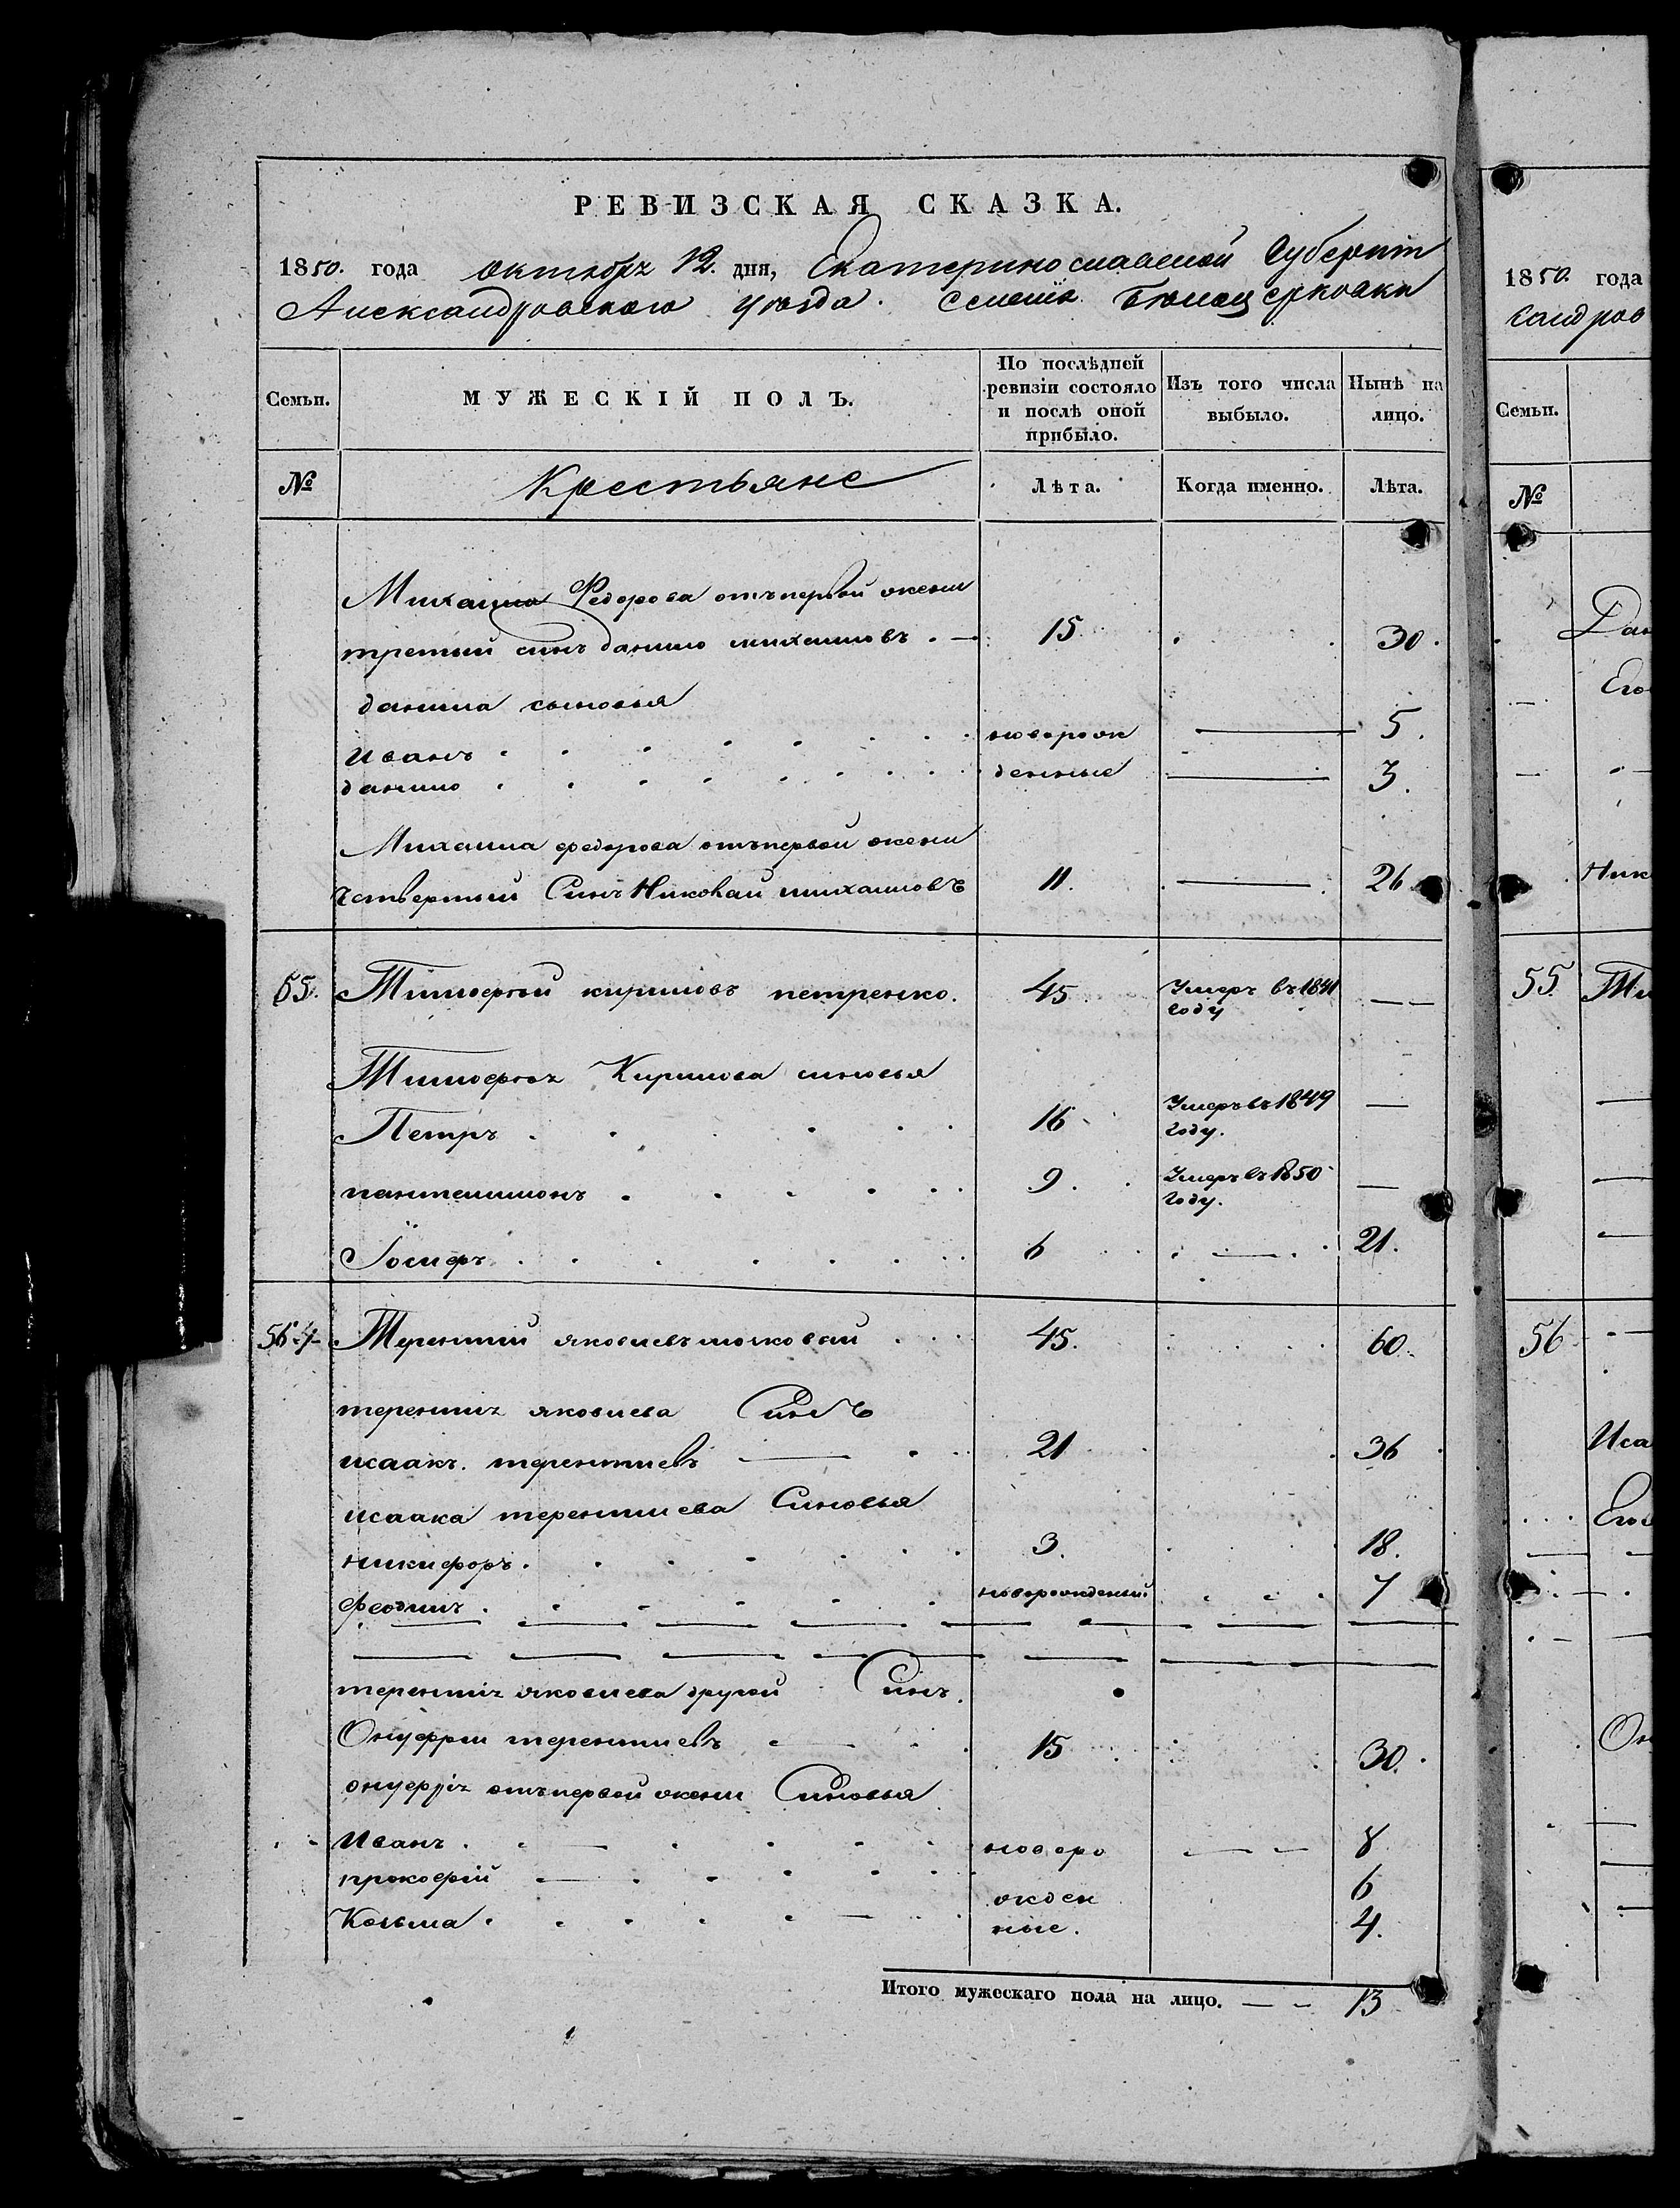 РЕВИЗСКАЯ СКАЗКА.
1850. года октября 12. дня, Екатеринославской Губернии
Александровского уезда. Селения Белоцерковки
Семьи.
МУЖЕСКІЙ ПОЛЪ.
По послѣдней ревизіи состояло и послѣ оной прибыло.
Изъ того числа выбыло.
Нынѣ на лицо.
№
Крестьяне
Лѣта.
Когда именно.
Лѣта.
Михаила Федорова отъ первой жени
третий синъ данило михаиловъ. — 15. 30.
данила сыновья
Иванъ новорож 5.
данило денные 3.
Михаила федорова отъ первой жени
четвертый Синъ Николай михаиловъ 11. 26
55. Тимофей кириловъ петренко. 45 Умеръ въ 1841 году —
Тимофея Кирилова синовья
Петръ 16 Умеръ въ 1849 году. —
пантелимонъ 9. Умеръ въ 1850 году. —
Іосифъ 6 21.
56. Терентий яковлевъ 45. 60.
терентия яковлева Синъ
исаакъ терентиевъ 21 36
исаака терентиева Синовья
никифоръ. 3. 18.
новорожденый. 7
терентия яковлева другой Синъ.
Онуфрии терентиевъ 15 30.
онуфрия отъ первой жени Синовья
Иванъ. новоро 8
прокофій жден 6
Козьма ные. 4.
Итого мужескаго пола на лицо. — 13
1850. года
Семьи.
№
55
56